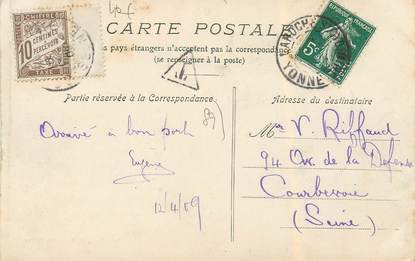 CARTE POSTALE
pays étrangers n'acceptent pas la correspondance
(se renseigner à la poste)
Partie réservée à la Correspondance
Adresse du destinataire
CHIFFRE
10
CENTIMES
À PERCEVOIR
TAXE
RÉPUBLIQUE FRANÇAISE
5c
YONNE
T
89
arrivé à bon port
Eugène
12/4/09
V. Riffaud
94 Av. de la Défense
Courbevoie
(Seine)